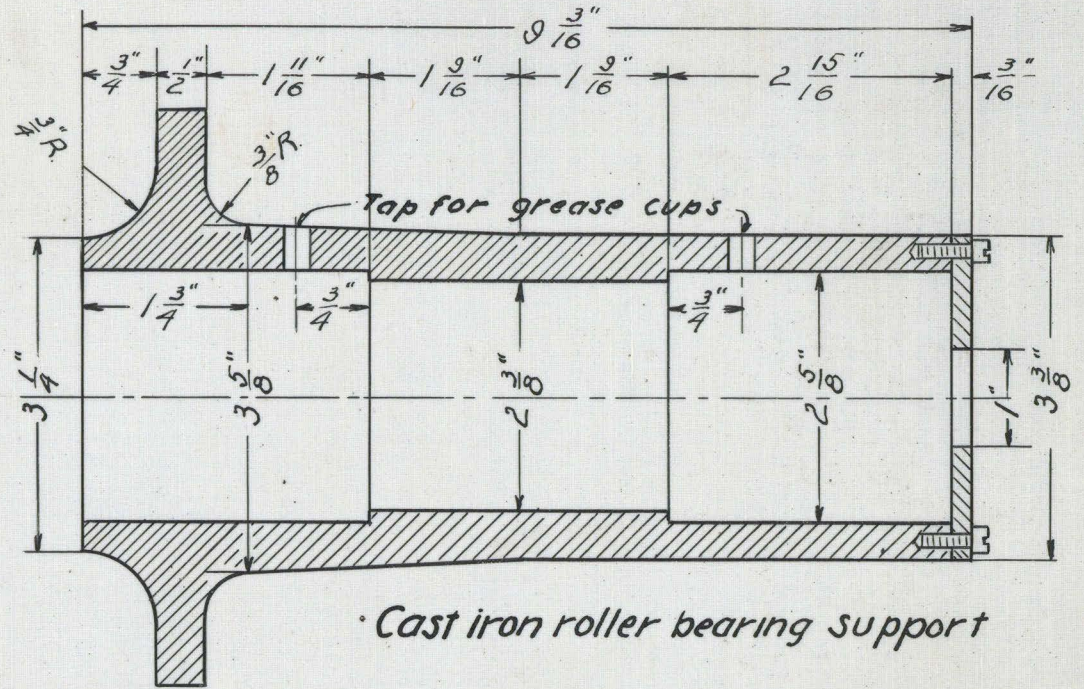 9 3/16"
3/4" 1/2" 1 11/16" 1 9/16" 1 9/16" 2 15/16" 3/16"
3/4" R.
3/8" R.
Tap for grease cups
1 3/4" 3/4" 3/4"
3 1/4" 3 5/8" 2 3/8" 2 5/8" 1" 3 3/8"
Cast iron roller bearing support